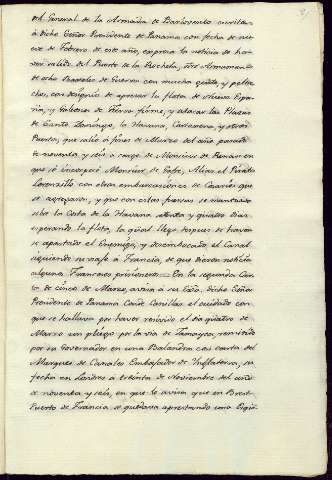 del General de la Armada de Barlovento escritas
á dicho Señor Presidente de Panama con fecha de nu-
eve de Febrero de este año, expresa la noticia de ha-
ver salido del Puerto de la Rochela, un Armamento
de ocho Baxeles de Guerra con mucha gente, y pertre-
chos, con designio de apresar la flota de Nueva Espa-
ña, y Galeones de Tierra firme, y atacar las Plazas
de Santo Domingo, la Havana, Cartaxena, y otros
Puertos, que salió á fines de Marzo del año pasado
de noventa y seis á cargo de Monsiur de Renau en
que se incorporó Monsiur de Grafe, Alias el Pirata
Lorenzillo con otras embarcaciones de Cosarios que
se agregaron, y que con estas fuerzas se mantuvo
sobre la Costa de la Havana setenta y quatro dias
esperando la flota, la qual llegó despues de haver-
se apartado el Enemigo, y desembocado el Canal
siguiendo su viaje á Francia, de que dieron noticia
algunos Franceses prisioneros = En la segunda Car-
ta de cinco de Marzo, avisa á su Exa. dicho Señor
Presidente de Panama Conde Canillas el cuidado con
que se hallava por haver recivido el dia quatro de
Marzo un pliego por la via de Jamayca, remitido
por su Governador en una Balandra con carta del
Marques de Canales Embaxador de Ynglaterra, su
fecha en Londres á treinta de Noviembre del año
de noventa y seis, en que le avisa que en Brest
Puerto de Francia se quedava aprestando una Esqua-